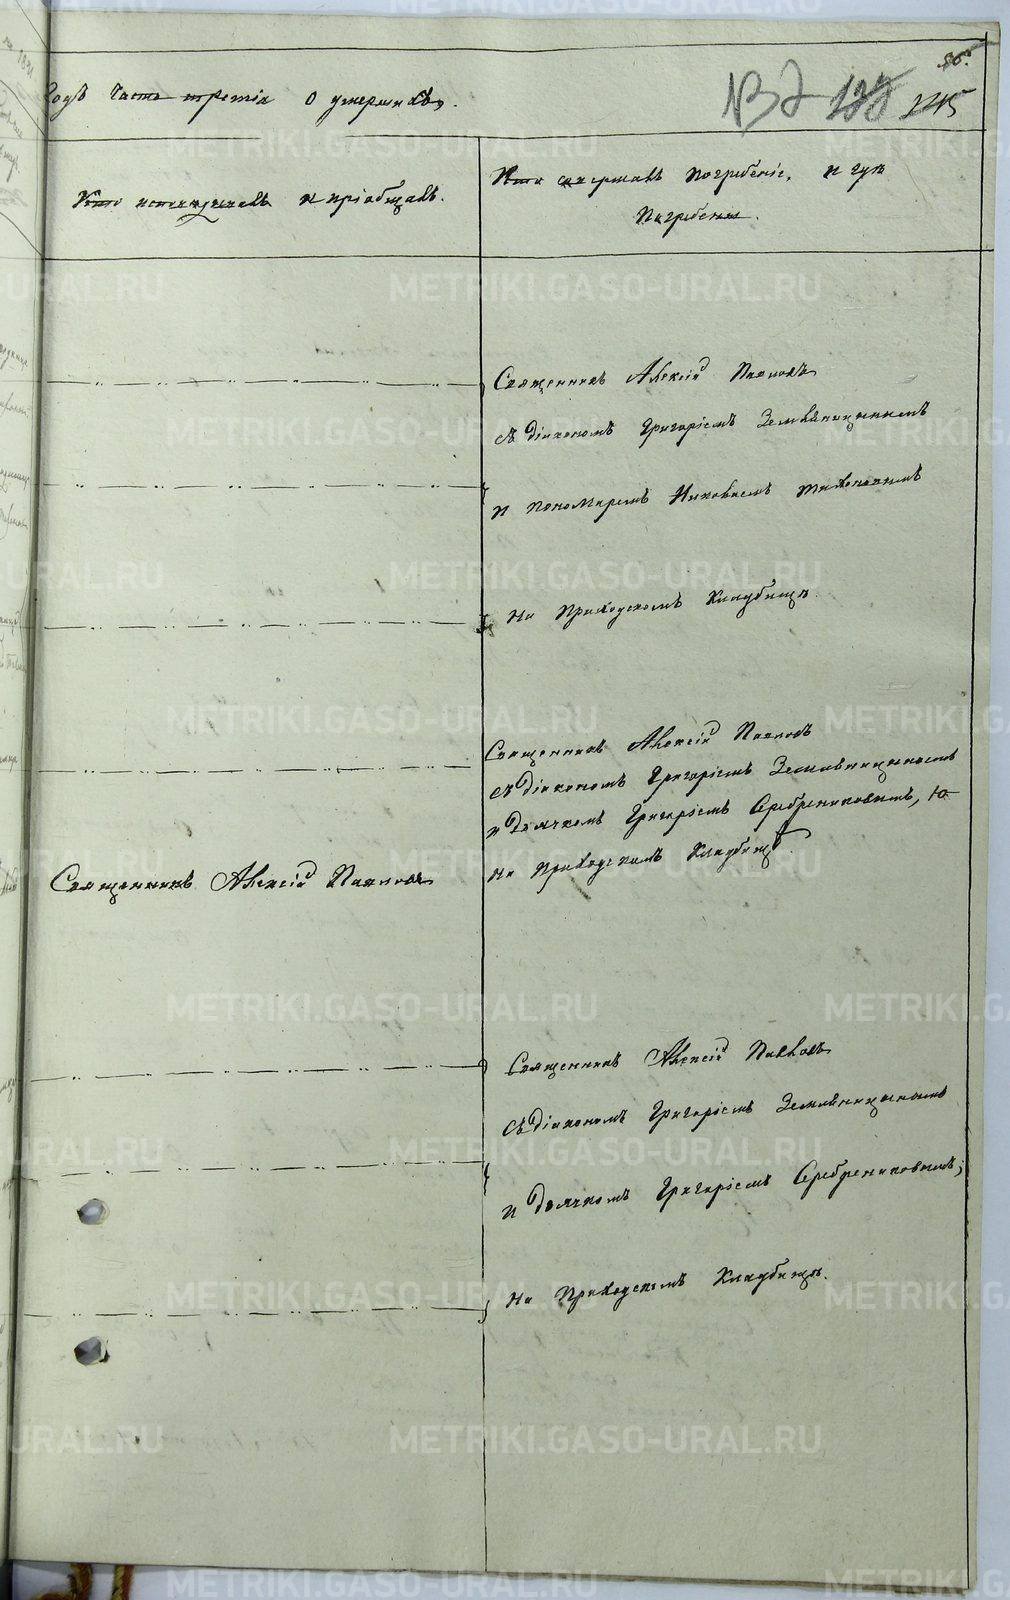 56.
137 245
Годъ Часть третія О умершихъ.
Кто исповѣдывалъ и пріобщалъ.
Кто совершалъ погребеніе, и гдѣ
Погребены.
Священникъ Алексій Павловъ
съ Діакономъ Григоріемъ Земляницынымъ
и пономаремъ Николаемъ
На Приходскомъ Кладбищѣ.
Священникъ Алексій Павловъ
съ Діакономъ Григоріемъ Земляницынымъ
и Дьячкомъ Григоріемъ Серебрениковымъ,
на Приходскомъ Кладбищѣ.
Священникъ Алексій Павловъ
Священникъ Алексій Павловъ
съ Діакономъ Григоріемъ Земляницынымъ
и Дьячкомъ Григоріемъ Серебрениковымъ;
На Приходскомъ Кладбищѣ.
METRIKI.GASO-URAL.RU